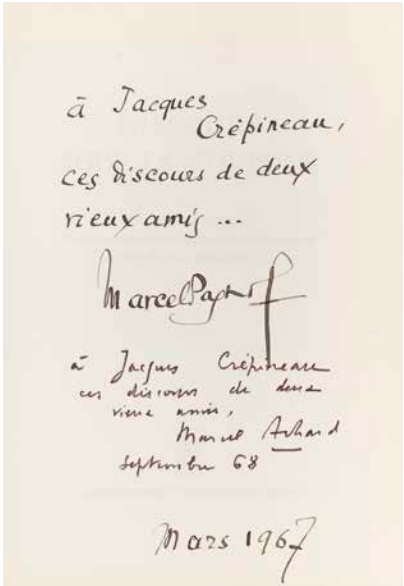 à Jacques
Crépineau,
ces discours de deux
vieux amis ...
Marcel Pagnol
à Jacques Crépineau
ces discours de deux
vieux amis,
Marcel Achard
Septembre 68
Mars 1967